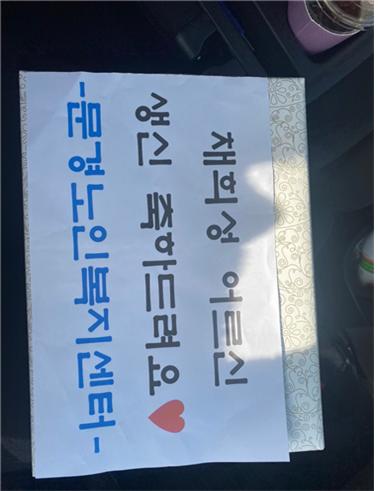 채희성 어르신
생신 축하드려요♥
-문경노인복지센터-